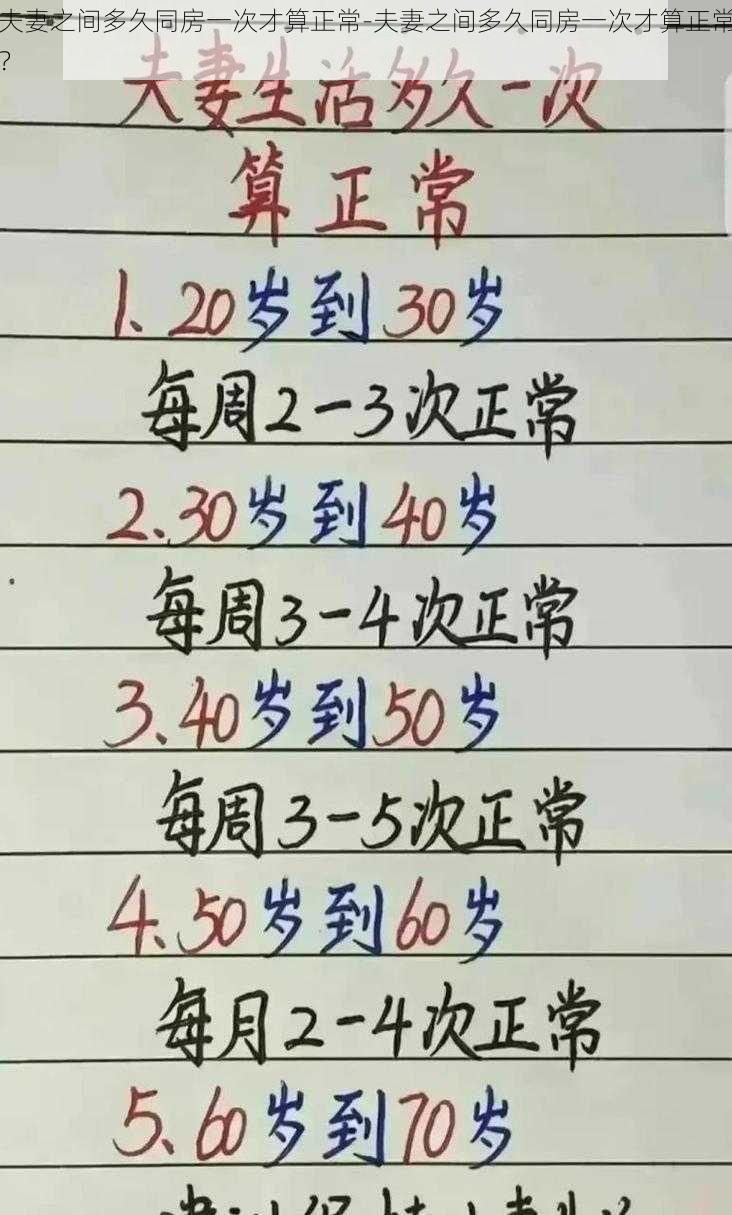 夫妻之间多久同房一次才算正常-夫妻之间多久同房一次才算正常
?
夫妻生活多久一次
算正常
1、20岁到30岁
每周2-3次正常
2、30岁到40岁
每周3-4次正常
3、40岁到50岁
每周3-5次正常
4、50岁到60岁
每月2-4次正常
5、60岁到70岁